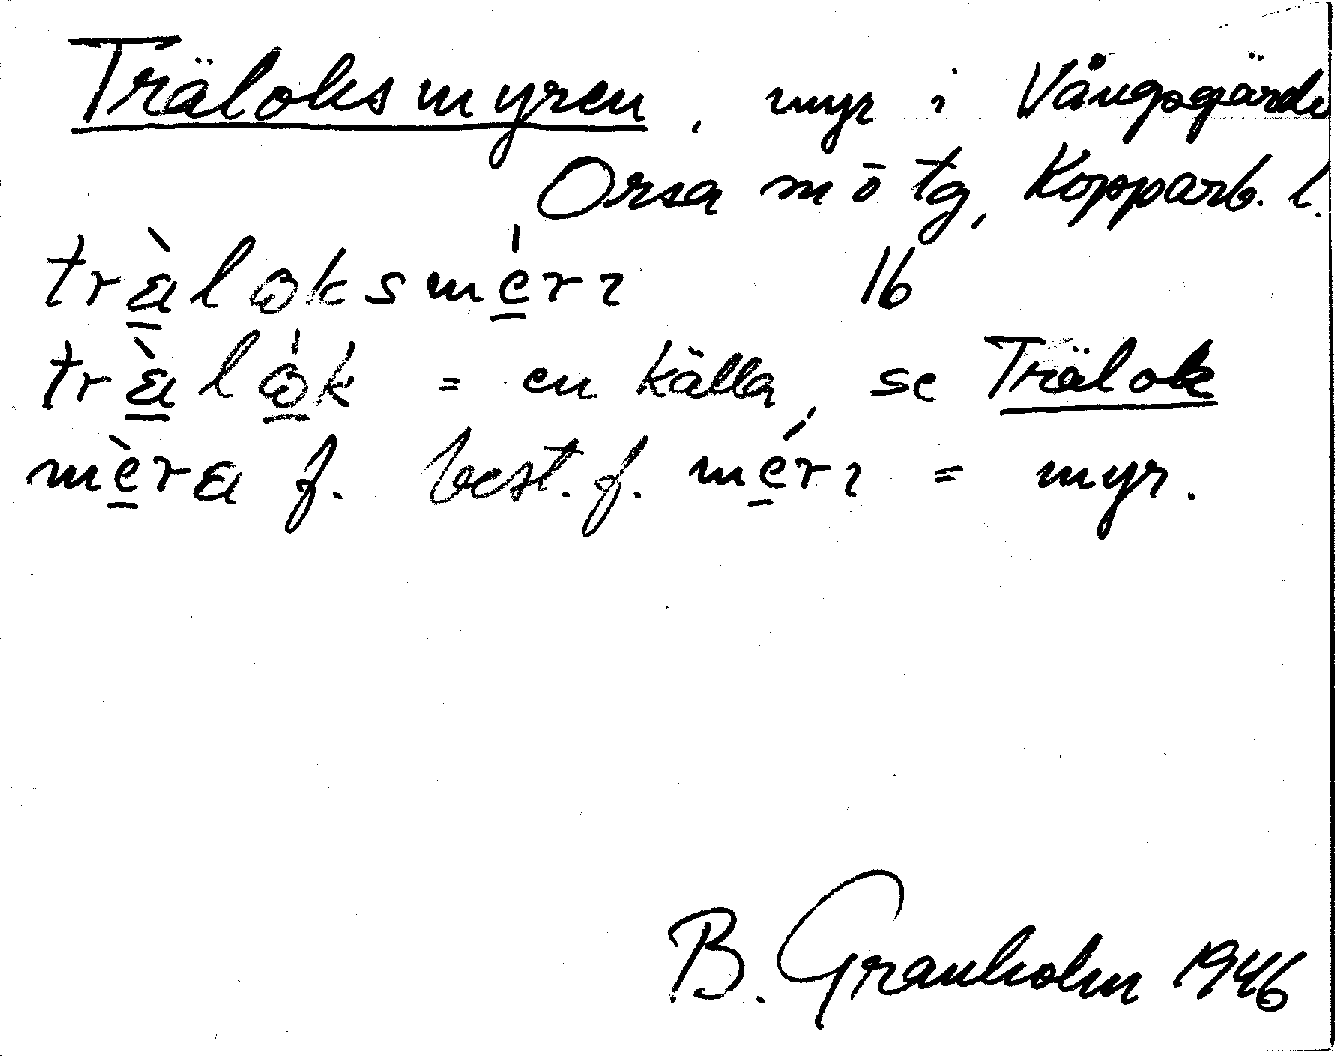 Träloksmyren, myr i Vångsgärde
Orsa m ö tg, Kopparb. l.
trä̀loksmérı 16
trä̀lók = en källa, se Trälok
mèra f. best. f. mérı = myr.
B. Granholm 1946